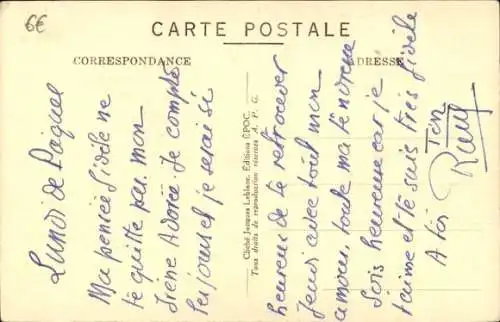 6€
CARTE POSTALE
CORRESPONDANCE
ADRESSE
Lundi de Pâques
Ma pensée fidèle ne
te quitte pas mon
Irène Adorée. Je compte
les jours et je serai si
heureux de te retrouver
Jeudi avec tout mon
amour, toute ma tendresse
Sois heureuse car je
t'aime et te suis très fidèle
A toi
Ton
Cliché Jacques Leblanc, Editions EPOC.
Tous droits de reproduction réservés A. P. G.